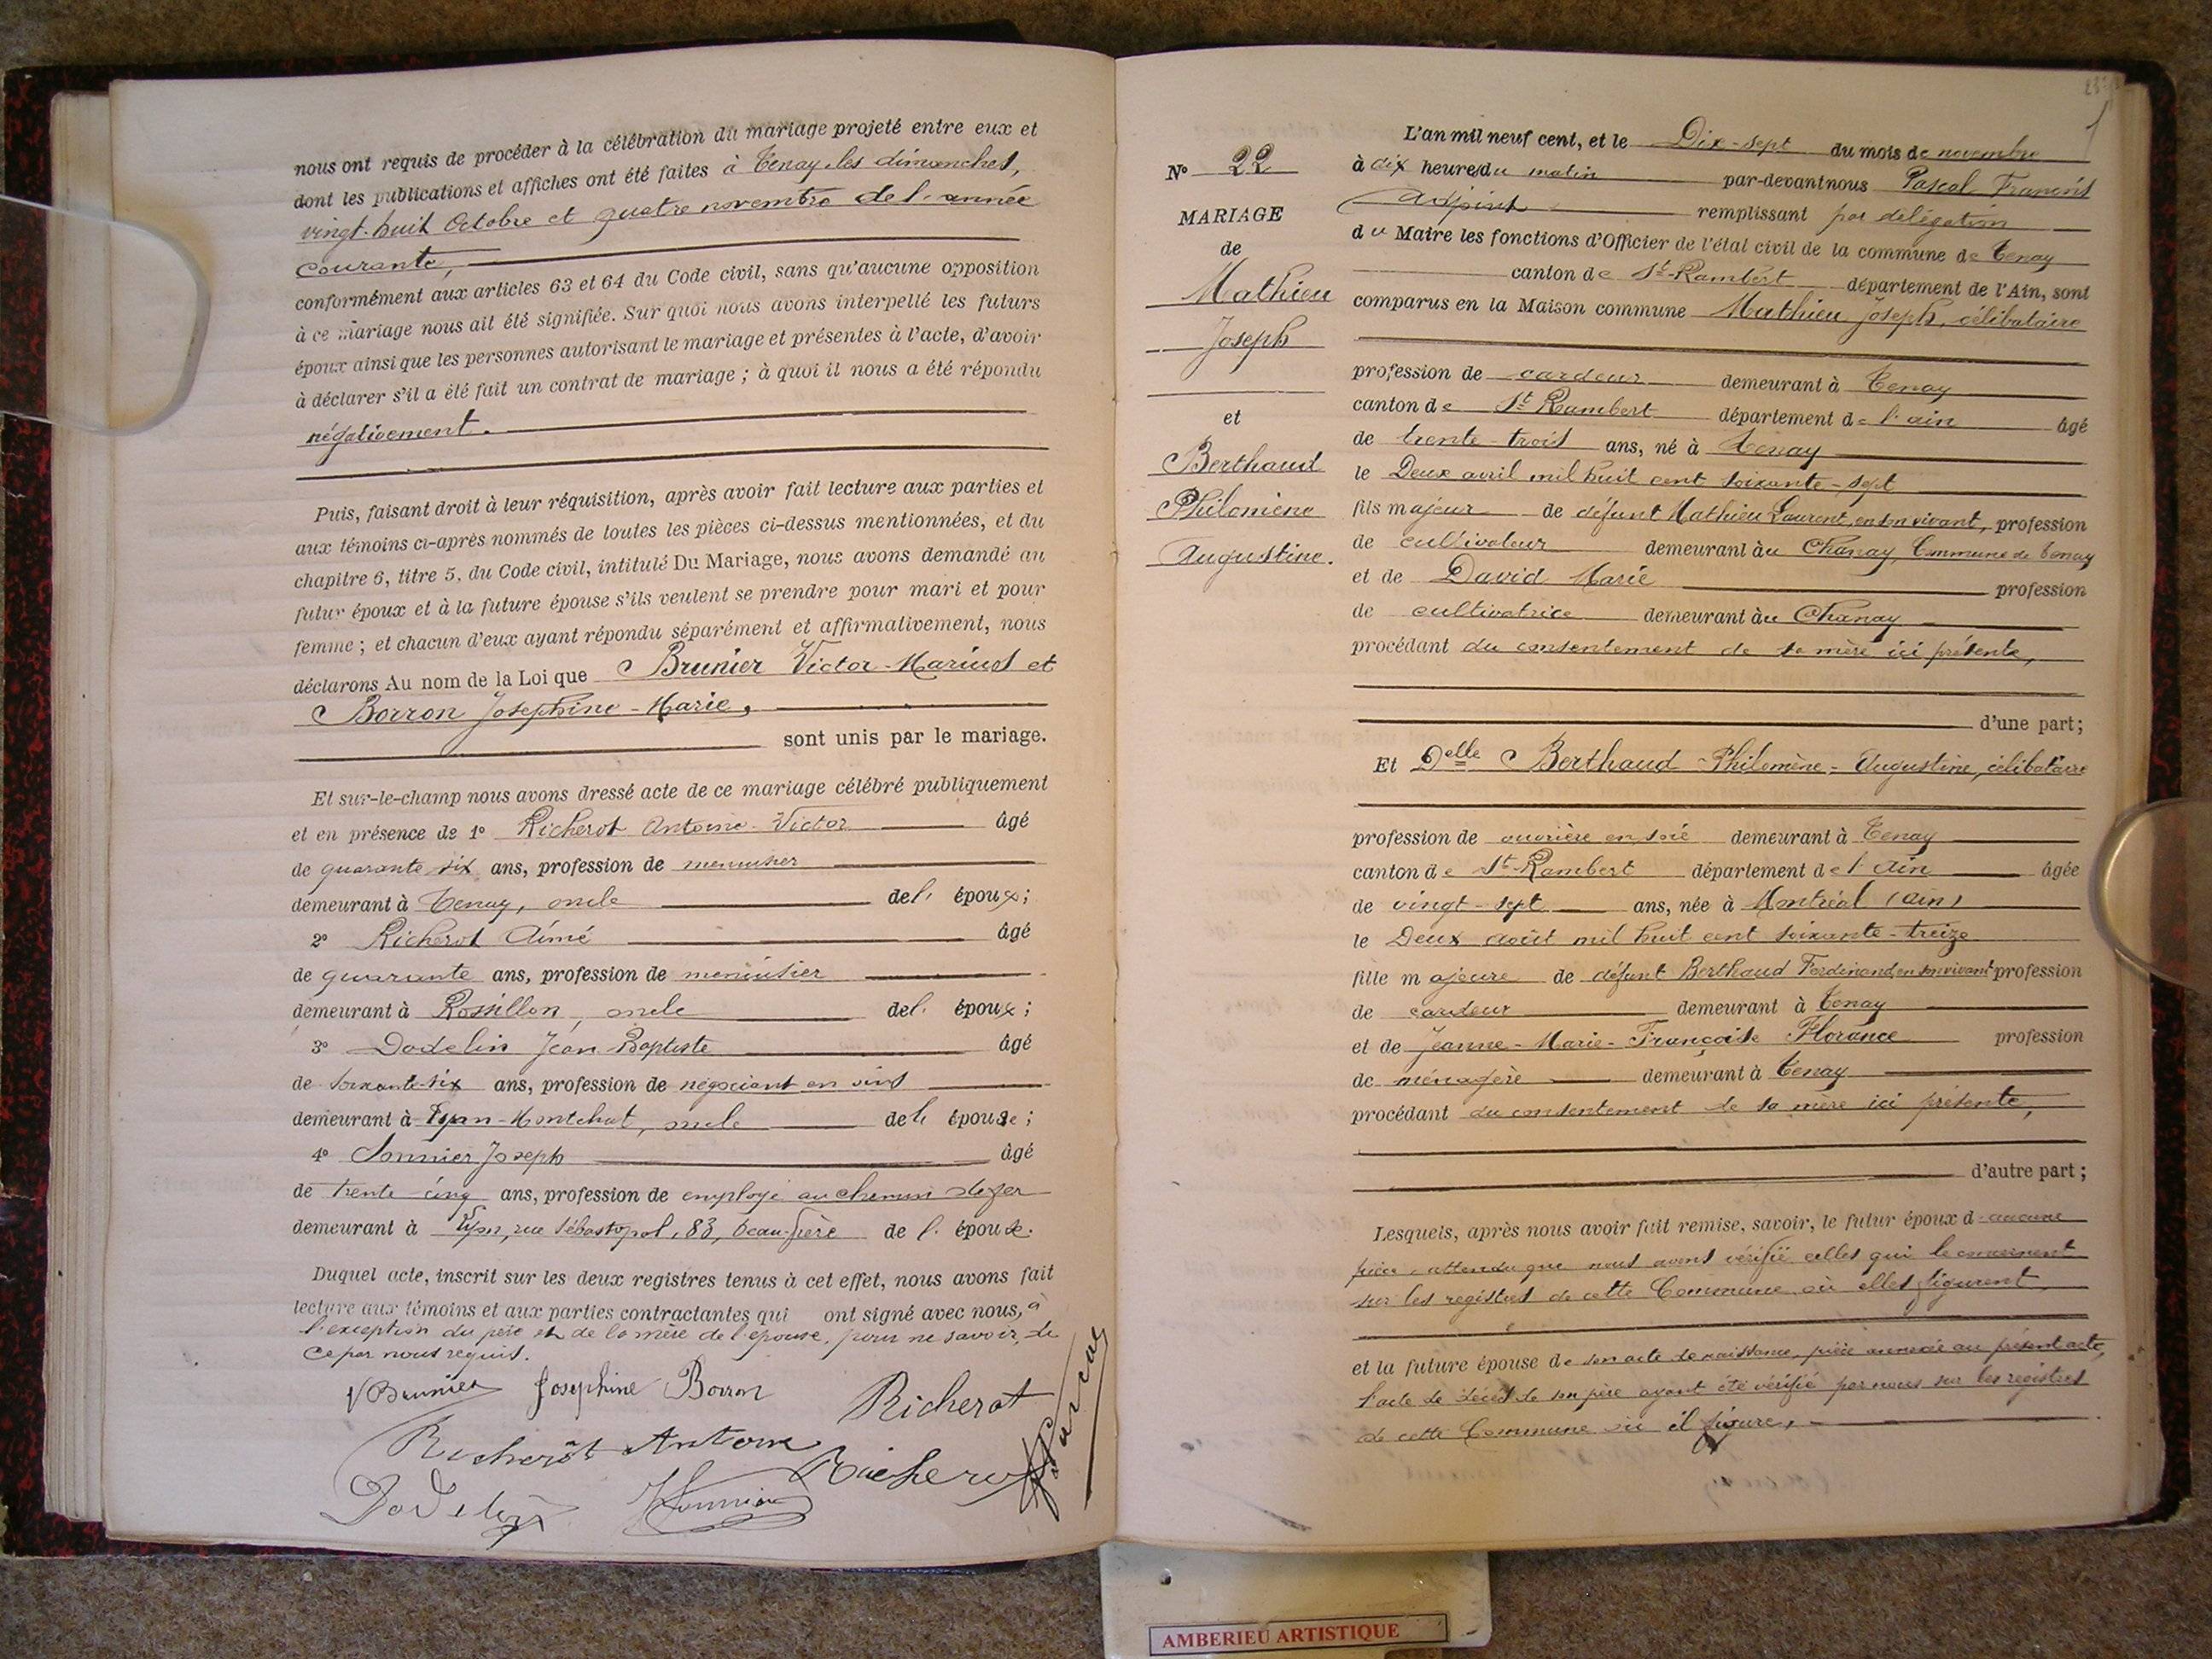 nous ont requis de procéder à la célébration du mariage projeté entre eux et
dont les publications et affiches ont été faites à Tenay, les dimanches,
vingt-huit Octobre et quatre novembre de l'année
courante,
conformément aux articles 63 et 64 du Code civil, sans qu'aucune opposition
à ce mariage nous ait été signifiée. Sur quoi nous avons interpellé les futurs
époux ainsi que les personnes autorisant le mariage et présentes à l'acte, d'avoir
à déclarer s'il a été fait un contrat de mariage ; à quoi il nous a été répondu
négativement.
Puis, faisant droit à leur réquisition, après avoir fait lecture aux parties et
aux témoins ci-après nommés de toutes les pièces ci-dessus mentionnées, et du
chapitre 6, titre 5, du Code civil, intitulé Du Mariage, nous avons demandé au
futur époux et à la future épouse s'ils veulent se prendre pour mari et pour
femme ; et chacun d'eux ayant répondu séparément et affirmativement, nous
déclarons Au nom de la Loi que Brunier Victor-Marius et
Borron Josephine-Marie,
sont unis par le mariage.
Et sur-le-champ nous avons dressé acte de ce mariage célébré publiquement
et en présence de 1º Richerot Antoine-Victor âgé
de quarante six ans, profession de menuisier
demeurant à Tenay, oncle de l' époux ;
2º Richerot Aimé âgé
de quarante ans, profession de menuisier
demeurant à Rossillon, oncle de l' époux ;
3º Dodelin Jean-Baptiste âgé
de soixante-six ans, profession de négociant en vins
demeurant à Lyon-Montchat, oncle de l' épouse ;
4º Sonnier Joseph âgé
de trente cinq ans, profession de employé au chemin de fer
demeurant à Lyon, rue Sébastopol, 83, beau-frère de l' époux.
Duquel acte, inscrit sur les deux registres tenus à cet effet, nous avons fait
lecture aux témoins et aux parties contractantes qui ont signé avec nous, à
l'exception du père et de la mère de l'épouse, pour ne savoir, de
ce par nous requis.
V Brunier Josephine Borron Richerot
Richerot Antoine Richerot
Dodelin Sonnier
Nº 22
MARIAGE
de
Mathieu
Joseph
et
Berthaud
Philomène
Augustine.
L'an mil neuf cent, et le Dix-sept du mois de novembre
à dix heures du matin par-devant nous Pascal François
Adjoint remplissant par délégation
du Maire les fonctions d'Officier de l'état civil de la commune de Tenay
canton de St-Rambert département de l'Ain, sont
comparus en la Maison commune Mathieu Joseph, célibataire
profession de cardeur demeurant à Tenay
canton de St Rambert département de l'ain âgé
de trente-trois ans, né à Tenay
le Deux avril mil huit cent soixante-sept
fils majeur de défunt Mathieu Laurent, en son vivant, profession
de cultivateur demeurant àu Chanay, Commune de Tenay
et de David Marie profession
de cultivatrice demeurant àu Chanay
procédant du consentement de sa mère ici présente,
d'une part ;
Et Delle Berthaud-Philomène-Augustine, célibataire
profession de ouvrière en soie demeurant à Tenay
canton de St-Rambert département de l'Ain âgée
de vingt-sept ans, née à Montréal (Ain)
le Deux août mil huit cent soixante-treize
fille majeure de défunt Berthaud Ferdinand, en son vivant profession
de cardeur demeurant à Tenay
et de Jeanne-Marie-Françoise Florance profession
de ménagère demeurant à Tenay
procédant du consentement de sa mère ici présente,
d'autre part ;
Lesquels, après nous avoir fait remise, savoir, le futur époux d'aucune
pièce, attendu que nous avons vérifié celles qui le concernent
sur les registres de cette Commune où elles figurent
et la future épouse de son acte de naissance, pièce annexée au présent acte,
l'acte de décès de son père ayant été vérifié par nous sur les registres
de cette Commune où il figure,
AMBERIEU ARTISTIQUE